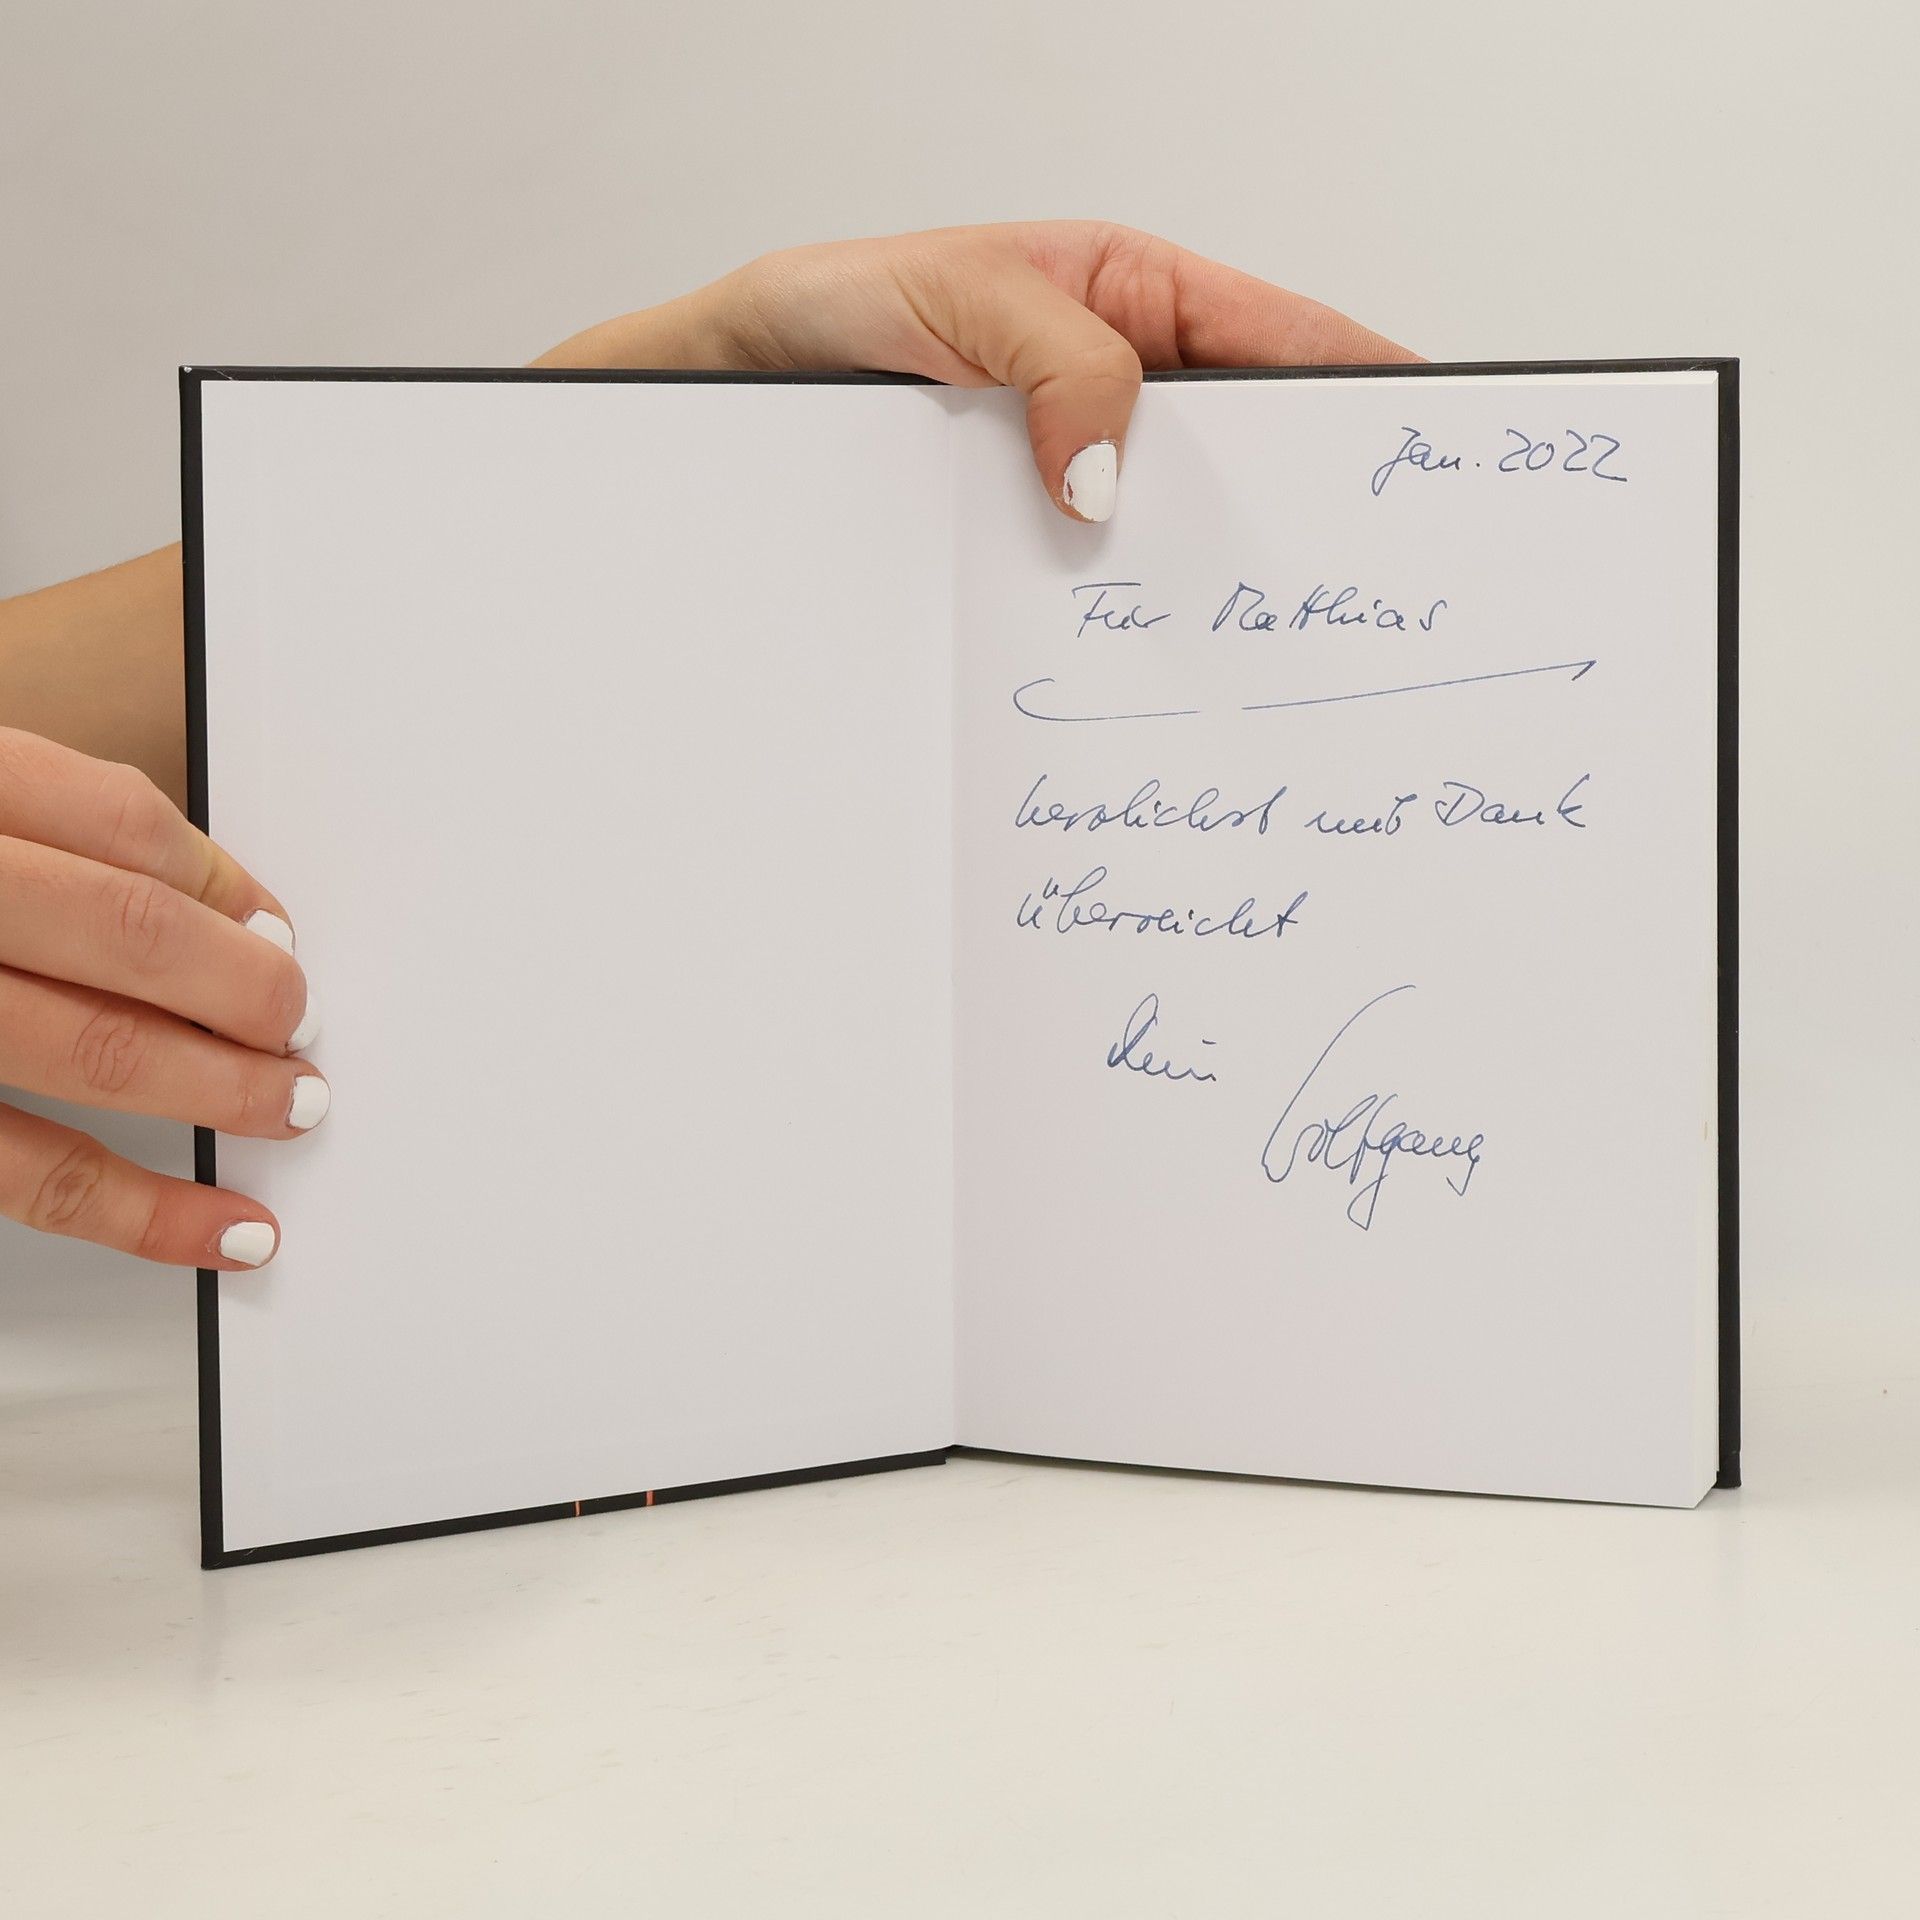 Jan. 2022
Für Matthias
herzlichst mit Dank
überreicht
Dein
Wolfgang